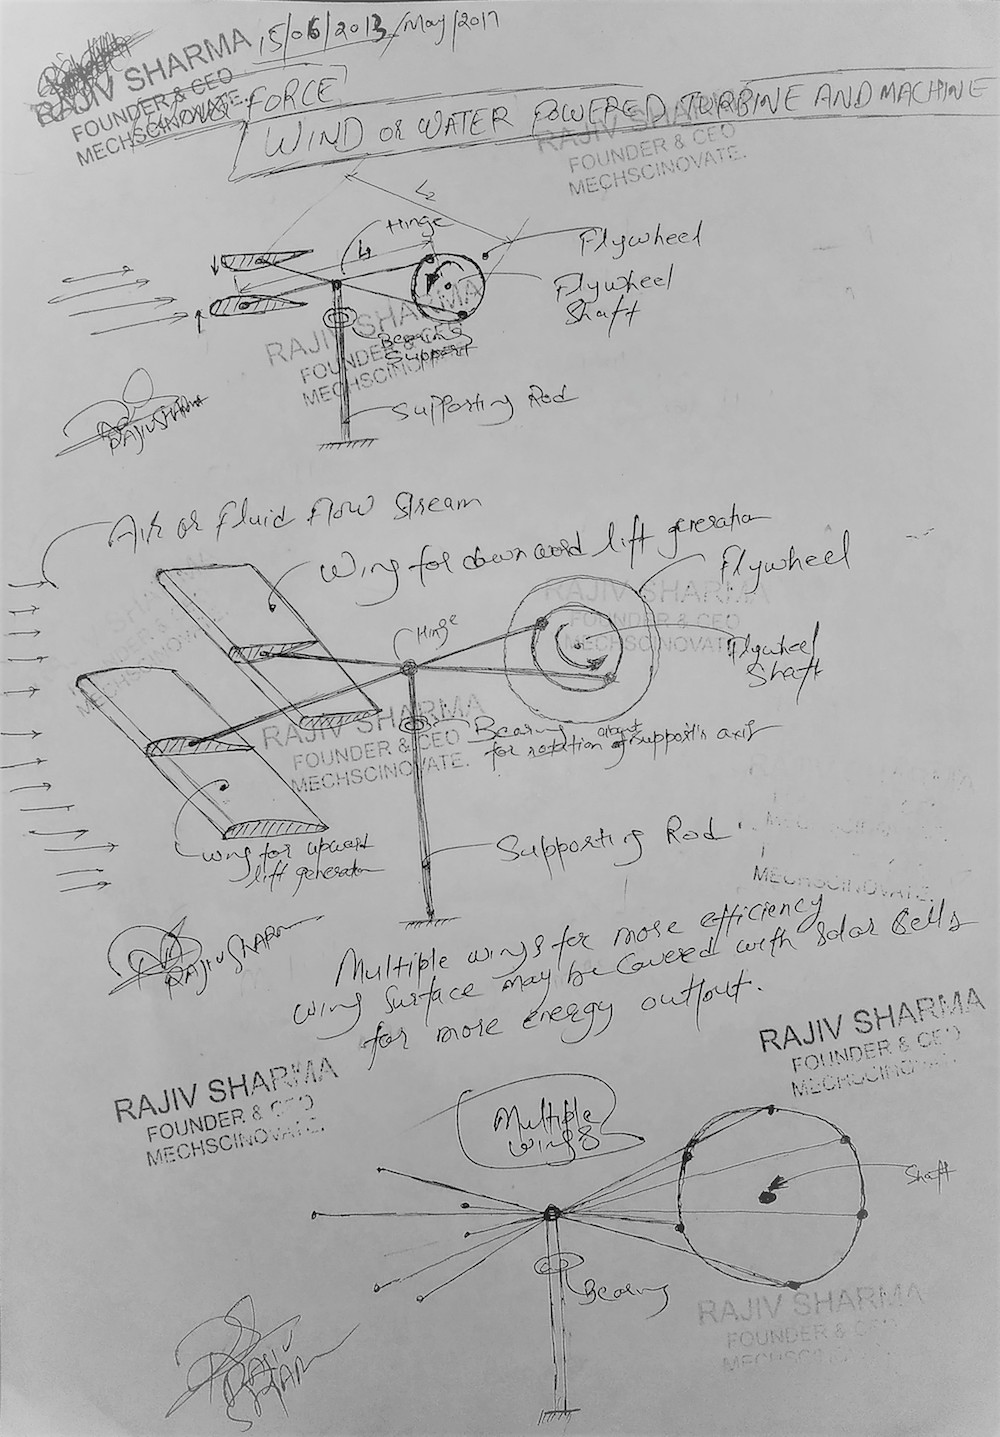 15/06/2013/May/2017
RAJIV SHARMA
FOUNDER & CEO
MECHSCINOVATE.
FORCE
WIND or WATER POWERED TURBINE AND MACHINE
RAJIV SHARMA
FOUNDER & CEO
MECHSCINOVATE.
L2
Hinge
L1
Flywheel
Flywheel
Shaft
RAJIV SHARMA
FOUNDER & CEO
MECHSCINOVATE.
Bearing
Support
Supporting Rod
RAJIV SHARMA
Air or Fluid Flow Stream
Wing for downword lift generation
Flywheel
RAJIV SHARMA
FOUNDER & CEO
MECHSCINOVATE.
Hinge
Flywheel
Shaft
RAJIV SHARMA
FOUNDER & CEO
MECHSCINOVATE.
Bearing
for rotation about support's axis
wing for upward
lift generation
Supporting Rod
MECHSCINOVATE.
RAJIV SHARMA
Multiple wings for more efficiency
wing surface may be covered with solar cells
for more energy output.
RAJIV SHARMA
FOUNDER & CEO
MECHSCINOVATE.
RAJIV SHARMA
FOUNDER & CEO
MECHSCINOVATE.
Multiple
wings
Shaft
Bearing
RAJIV SHARMA
FOUNDER & CEO
RAJIV
SHARMA